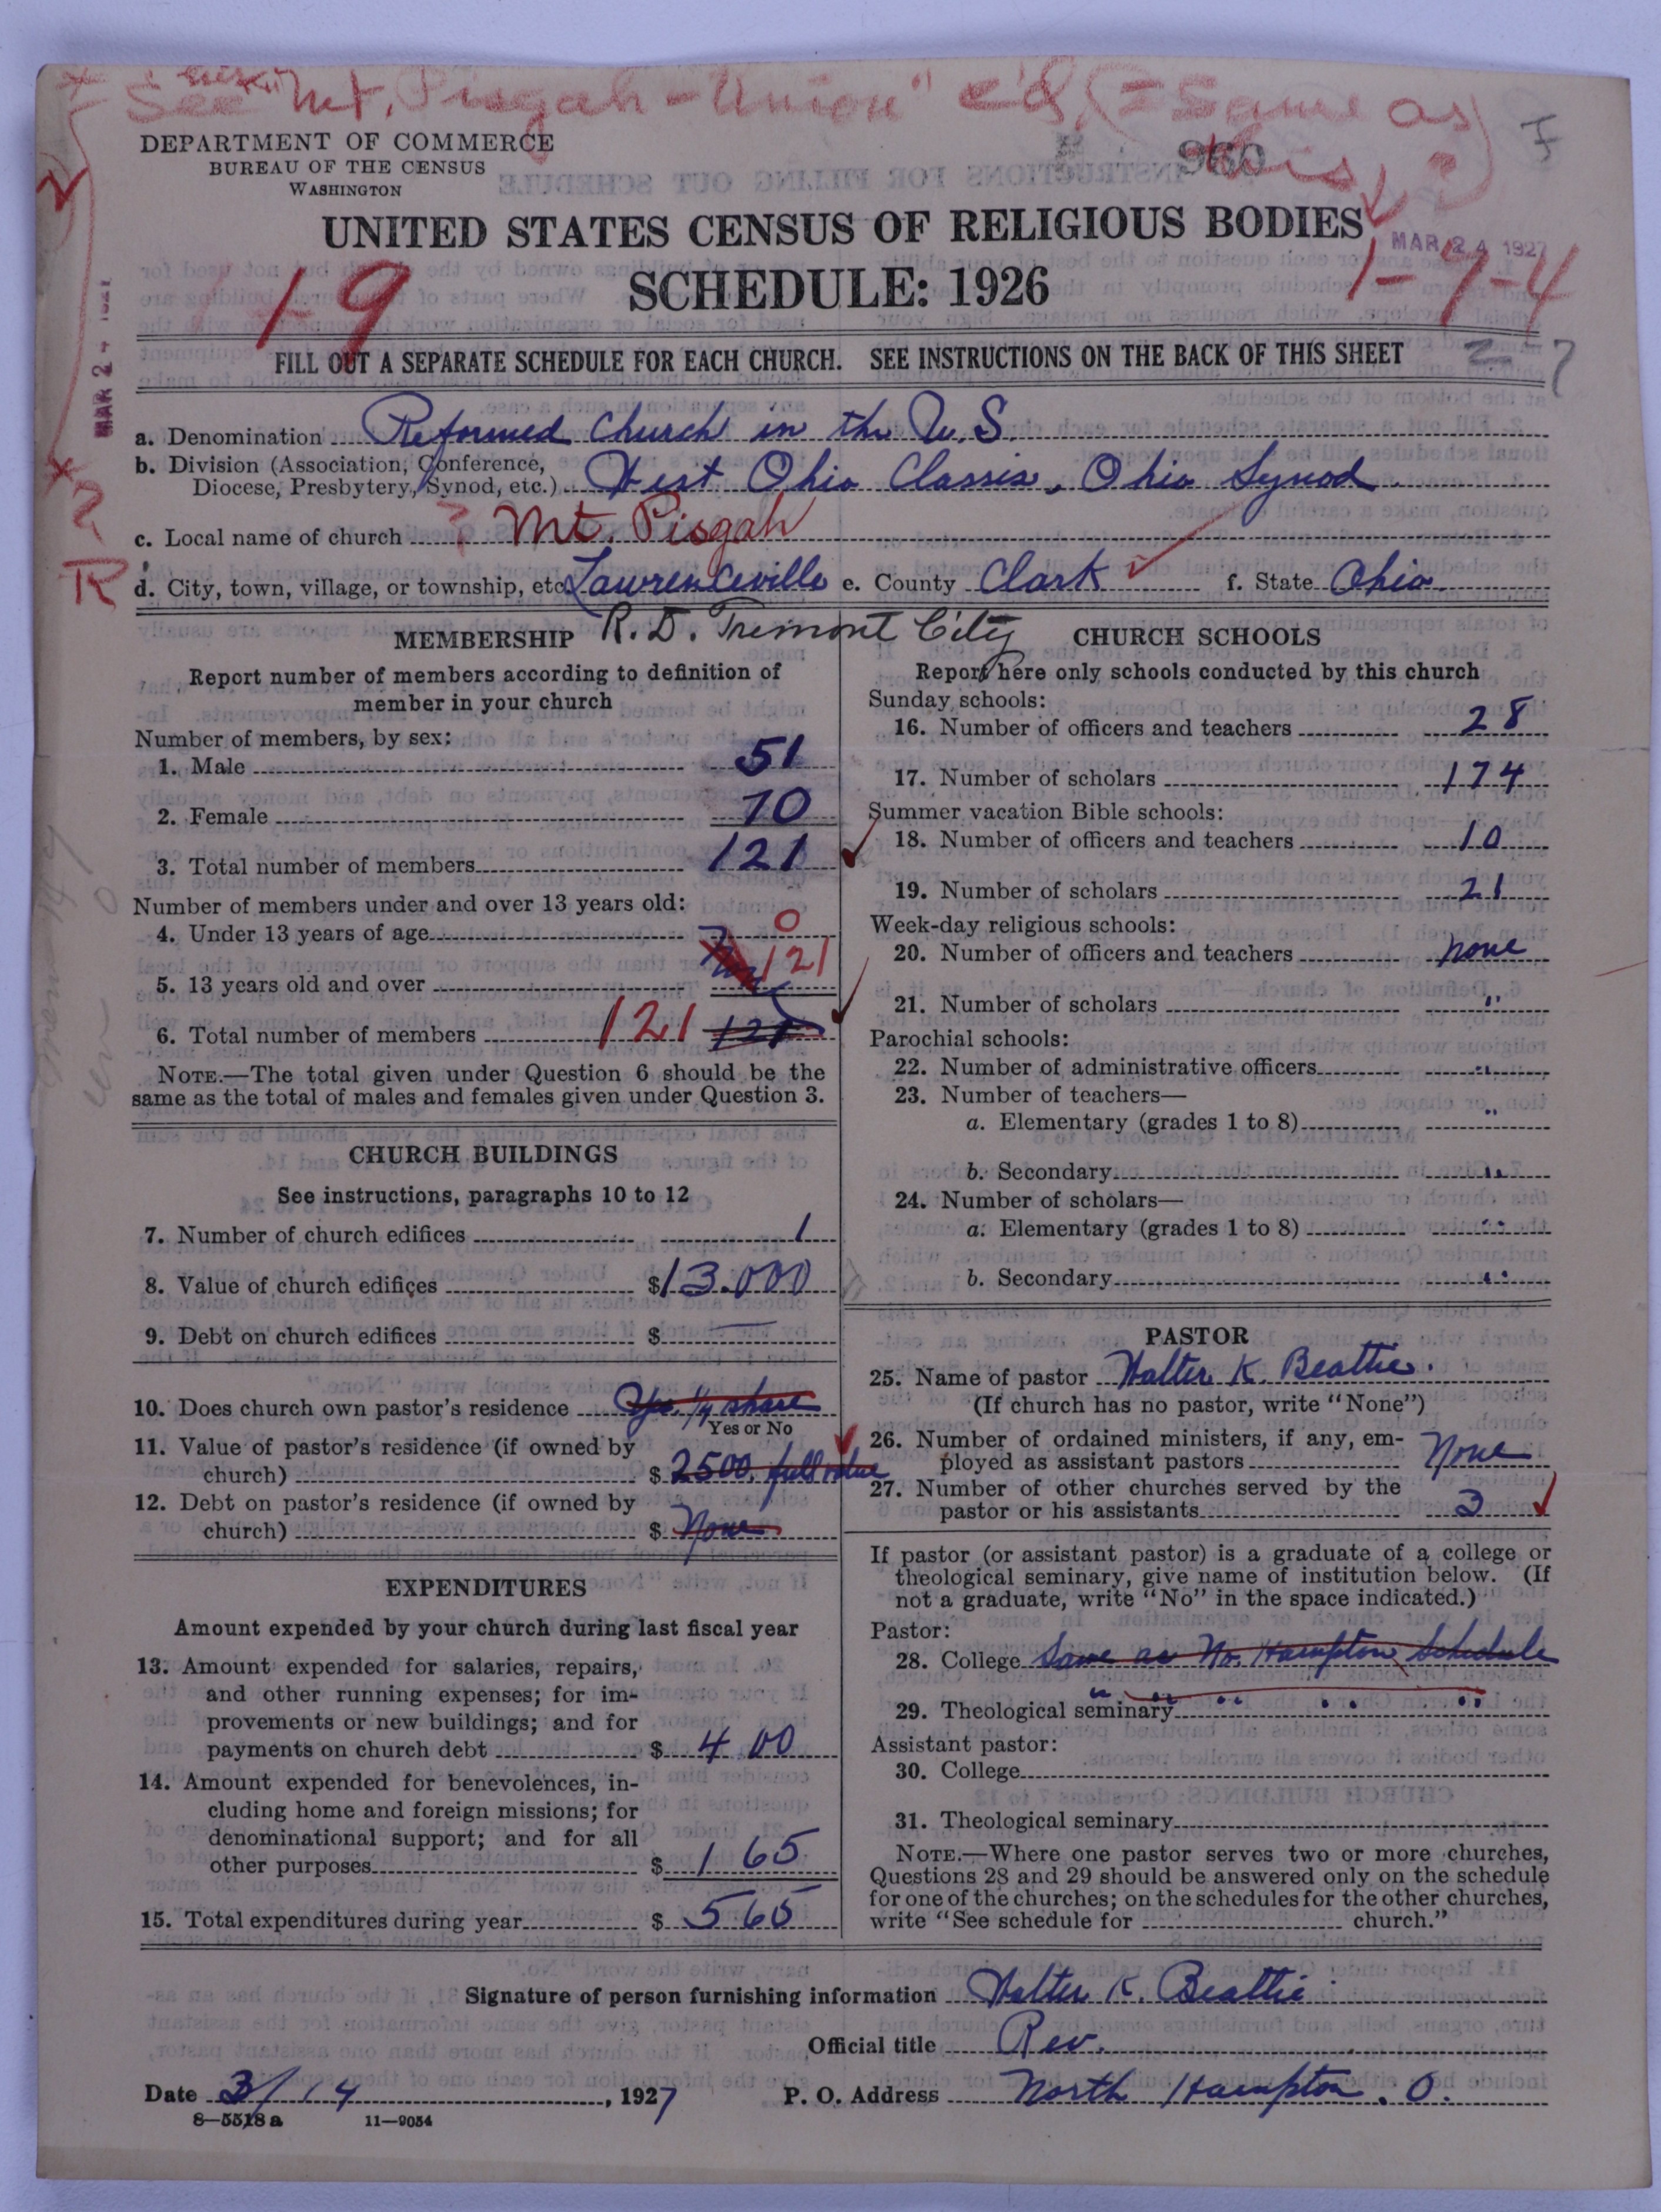 See "Mt. Pisgah - Union" c'd, (= same as this?)
DEPARTMENT OF COMMERCE
BUREAU OF THE CENSUS
WASHINGTON
960
UNITED STATES CENSUS OF RELIGIOUS BODIES
MAR 24 1927
SCHEDULE: 1926
1-9
1-9-4
FILL OUT A SEPARATE SCHEDULE FOR EACH CHURCH. SEE INSTRUCTIONS ON THE BACK OF THIS SHEET
a. Denomination Reformed Church in the U.S.
b. Division (Association, Conference, Diocese, Presbytery, Synod, etc.) West Ohio Classis, Ohio Synod
c. Local name of church ? Mt. Pisgah
d. City, town, village, or township, etc. Lawrenceville e. County Clark f. State Ohio.
R.D. Tremont City
MEMBERSHIP
Report number of members according to definition of
member in your church
Number of members, by sex:
1. Male 51
2. Female 70
3. Total number of members 121
Number of members under and over 13 years old:
4. Under 13 years of age 0
5. 13 years old and over 121
6. Total number of members 121 121
NOTE.—The total given under Question 6 should be the
same as the total of males and females given under Question 3.
CHURCH BUILDINGS
See instructions, paragraphs 10 to 12
7. Number of church edifices 1
8. Value of church edifices $13.000
9. Debt on church edifices $ —
10. Does church own pastor's residence Yes. 1/4 share
Yes or No
11. Value of pastor's residence (if owned by
church) $ 2500. full value
12. Debt on pastor's residence (if owned by
church) $ None
EXPENDITURES
Amount expended by your church during last fiscal year
13. Amount expended for salaries, repairs,
and other running expenses; for im-
provements or new buildings; and for
payments on church debt $ 400
14. Amount expended for benevolences, in-
cluding home and foreign missions; for
denominational support; and for all
other purposes $ 165
15. Total expenditures during year $ 565
CHURCH SCHOOLS
Report here only schools conducted by this church
Sunday schools:
16. Number of officers and teachers 28
17. Number of scholars 174
Summer vacation Bible schools:
18. Number of officers and teachers 10
19. Number of scholars 21
Week-day religious schools:
20. Number of officers and teachers none
21. Number of scholars "
Parochial schools:
22. Number of administrative officers "
23. Number of teachers—
a. Elementary (grades 1 to 8) "
b. Secondary "
24. Number of scholars—
a. Elementary (grades 1 to 8) "
b. Secondary "
PASTOR
25. Name of pastor Walter K. Beattie.
(If church has no pastor, write "None")
26. Number of ordained ministers, if any, em-
ployed as assistant pastors None
27. Number of other churches served by the
pastor or his assistants 3
If pastor (or assistant pastor) is a graduate of a college or
theological seminary, give name of institution below. (If
not a graduate, write "No" in the space indicated.)
Pastor:
28. College Same as No. Hampton Schedule
29. Theological seminary " " " " "
Assistant pastor:
30. College
31. Theological seminary
NOTE.—Where one pastor serves two or more churches,
Questions 28 and 29 should be answered only on the schedule
for one of the churches; on the schedules for the other churches,
write "See schedule for church."
Signature of person furnishing information Walter K. Beattie
Official title Rev.
Date 3/14, 1927 P. O. Address North Hampton. O.
8—5518 a 11—9054